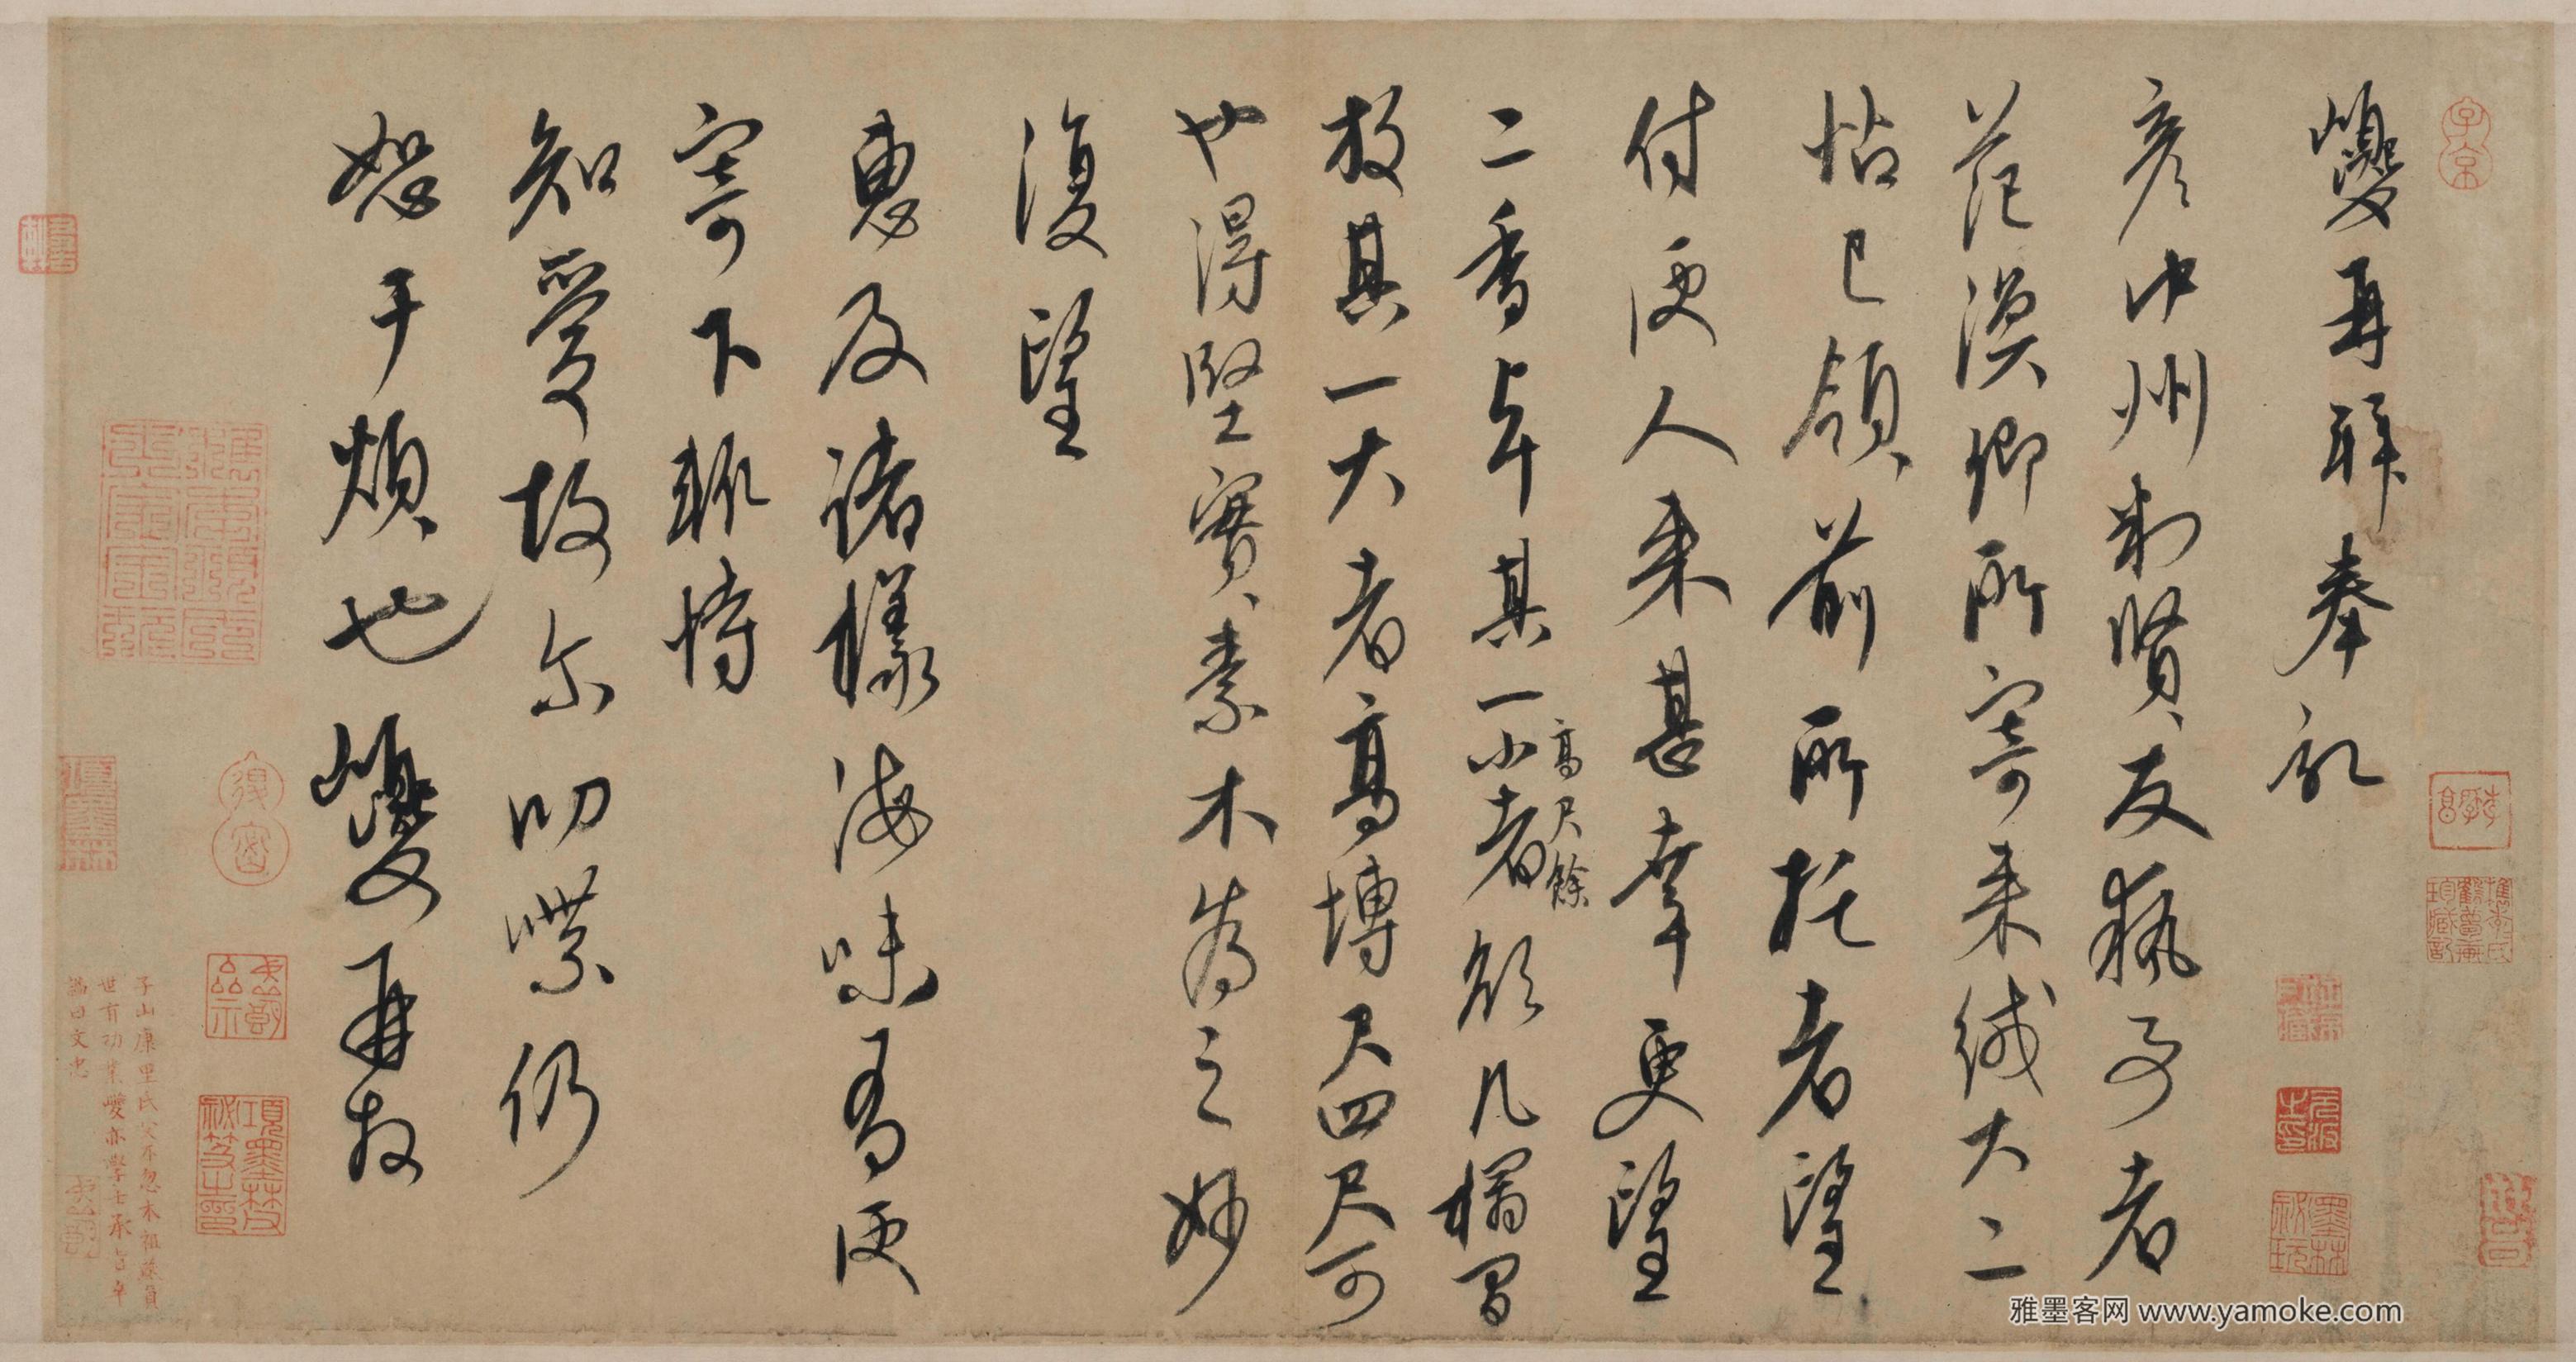 巎再拜奉記
彦中州判賢友執事者
范漢卿所寄來絨大二
帖已領前所托者望
付便人來甚幸更望
二香卓其一小者高尺餘於几榻間
放其一大者高博尺四尺可
也得堅實素木為之妙
復望
惠及諸樣海味有便
寄下輒恃
知愛故尔叨喋仍
恕干煩也巎再拜
子山康里氏父不忽木祖燕真
世有功業巎亦學士承旨卒
謚曰文忠
子京
雅墨客网 www.yamoke.com